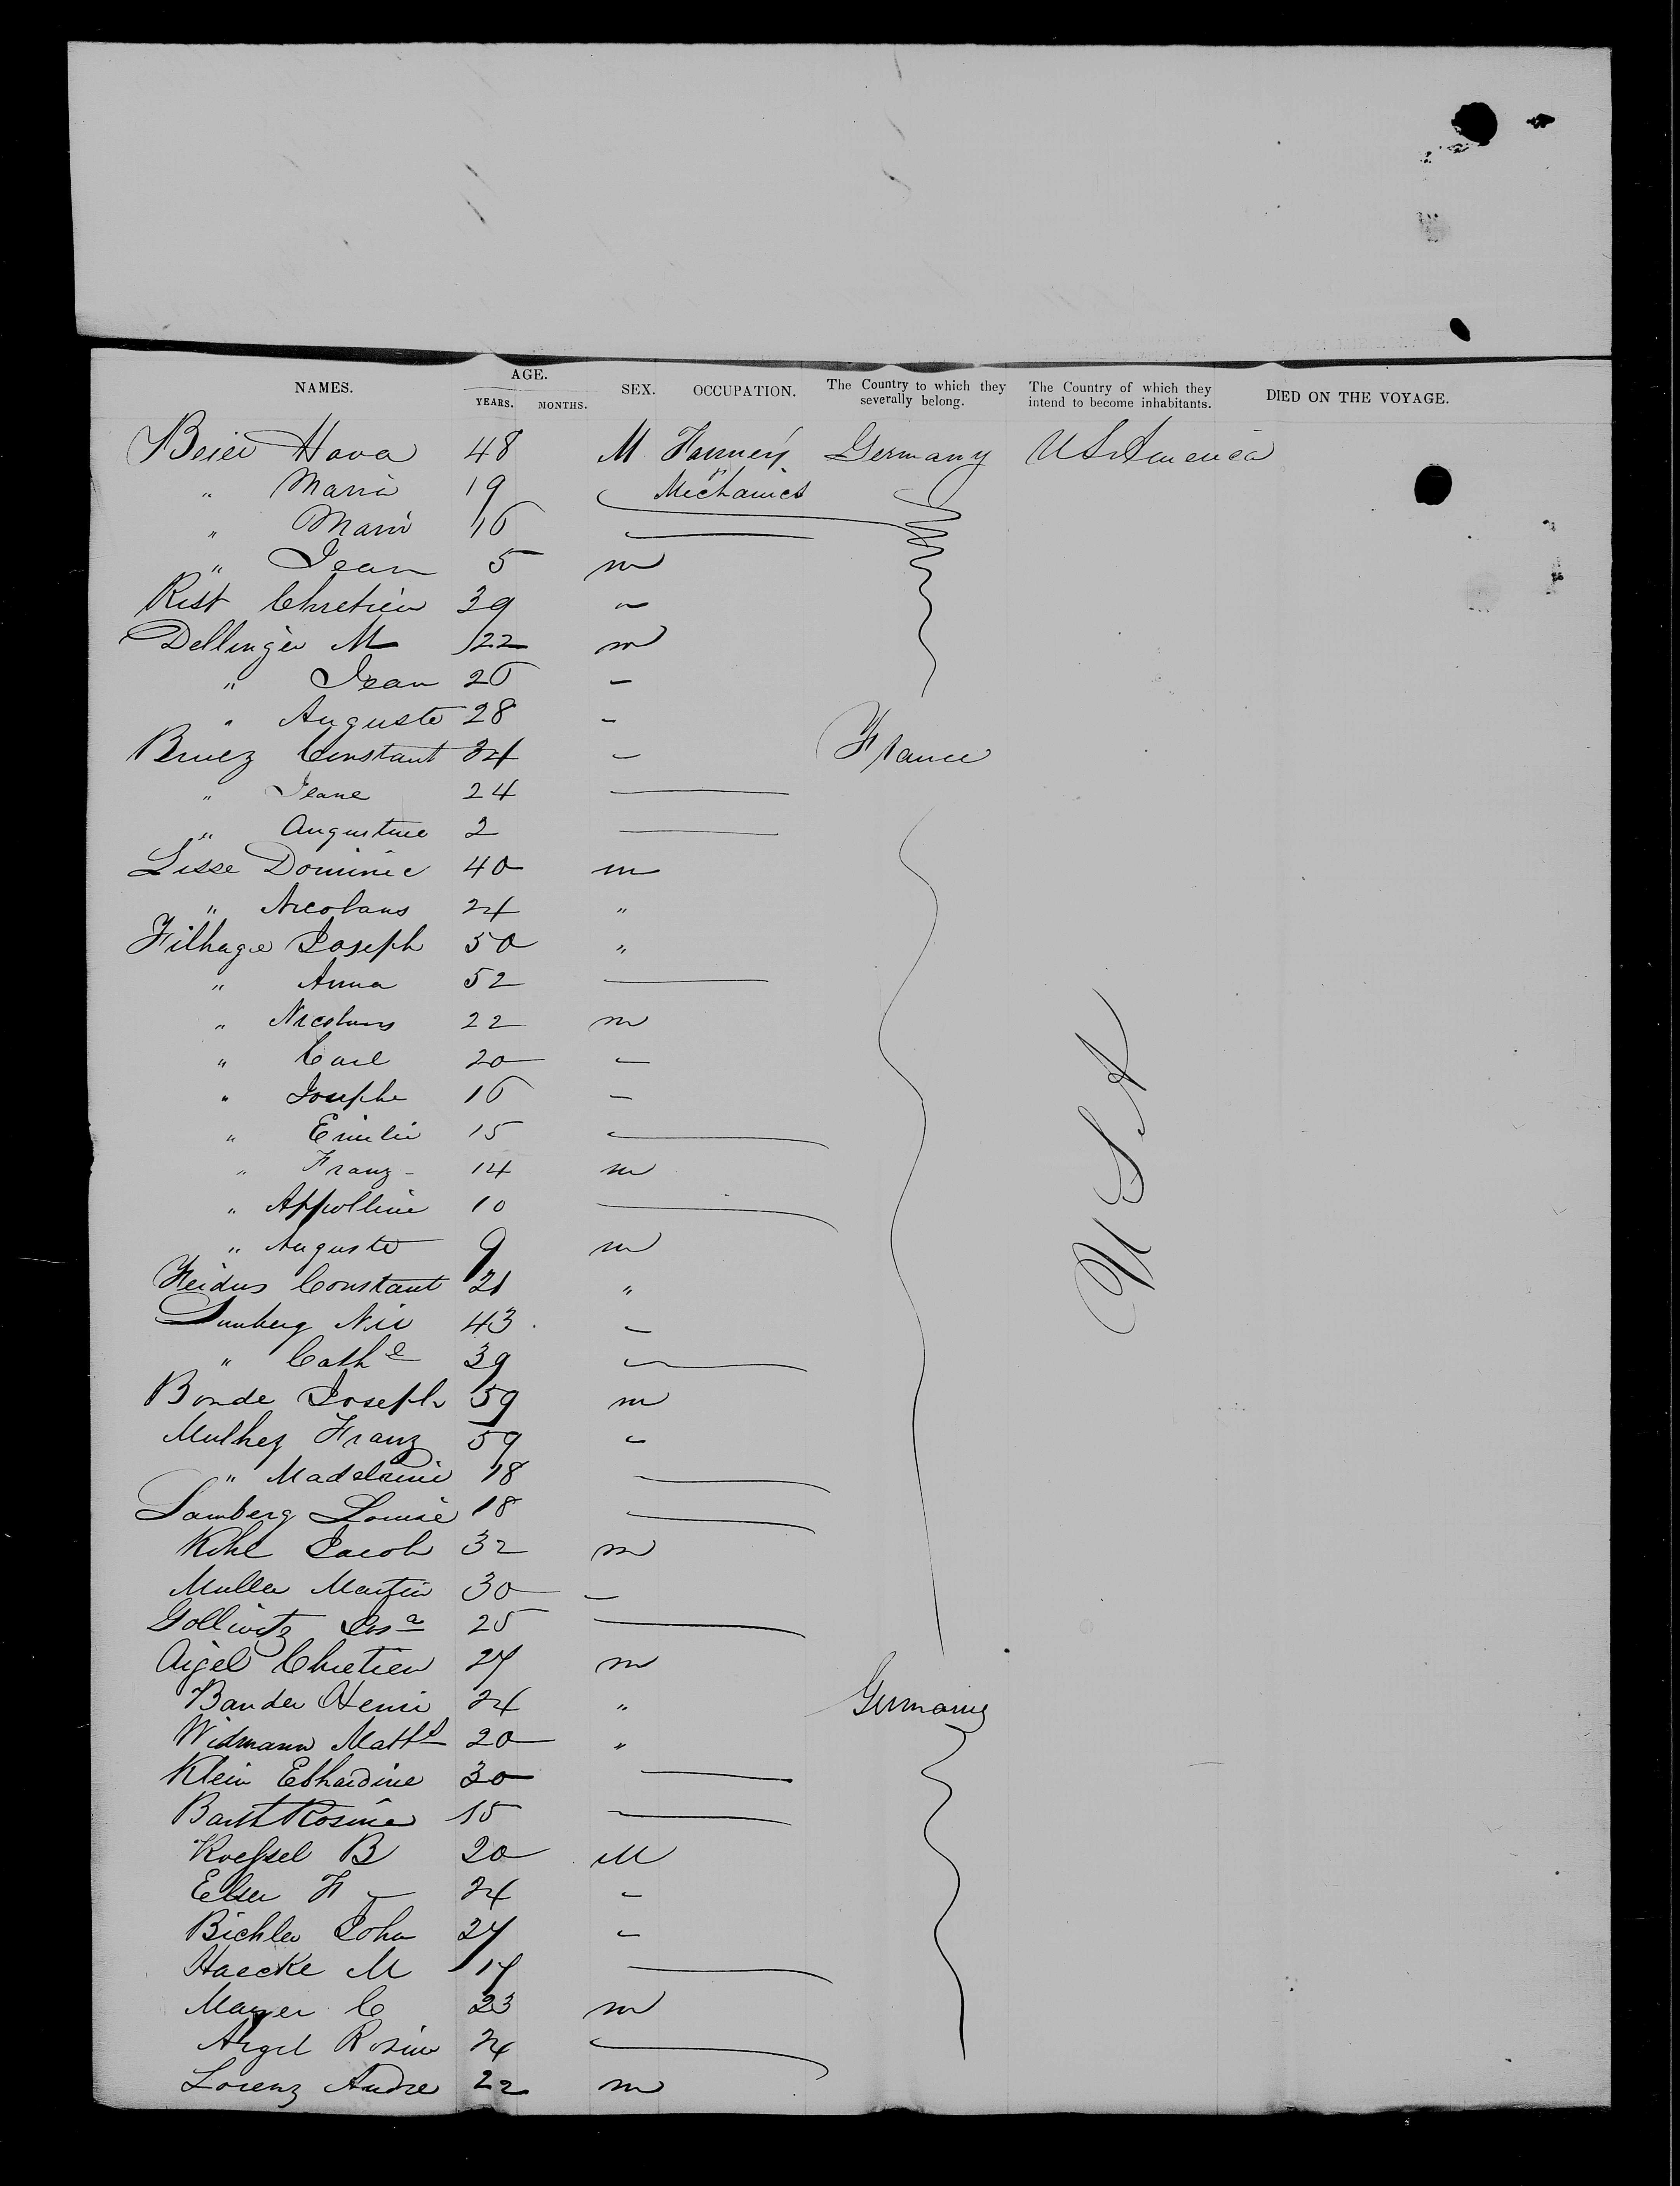 NAMES. AGE. YEARS. MONTHS. SEX. OCCUPATION. The Country to which they severally belong. The Country of which they intend to become inhabitants. DIED ON THE VOYAGE.
Beier Hava 48 M Farmers Germany U S America
" Maria 19 Mechanics
" Marie 16
" Jean 5 m
Rist Chretien 39 "
Dellinger M 22 m
" Jean 26 "
" Auguste 28 "
Bruez Constant 34 " France
" Jeane 24
" Augustine 2
Lisse Dominic 40 m
" Nicolaus 24 "
Filhage Joseph 50 "
" Anna 52
" Nicolaus 22 m
" Carl 20 "
" Josephe 16 "
" Emilie 15
" Franz 14 m
" Appolline 10
" Auguste 9 m
Heidus Constant 21 "
Lamberg Nic 43 "
" Cath e 39
Bonde Joseph 59 m
Mulhez Franz 59 "
" Madelaine 18
Lamberg Louise 18
Kihl Jacob 32 m
Muller Martin 30 "
Gollwitz Jos a 25
Aigel Chretien 27 m
U S A
Bander Henri 24 " Germany
Widmann Matth s 20 "
Klein Ebhardine 30
Barth Rosine 15
Roessel B 20 M
Elser F 24 "
Bichler John 27 "
Haecke M 17
Mayer C 23 m
Argel Rosine 24
Lorenz Andre 22 m